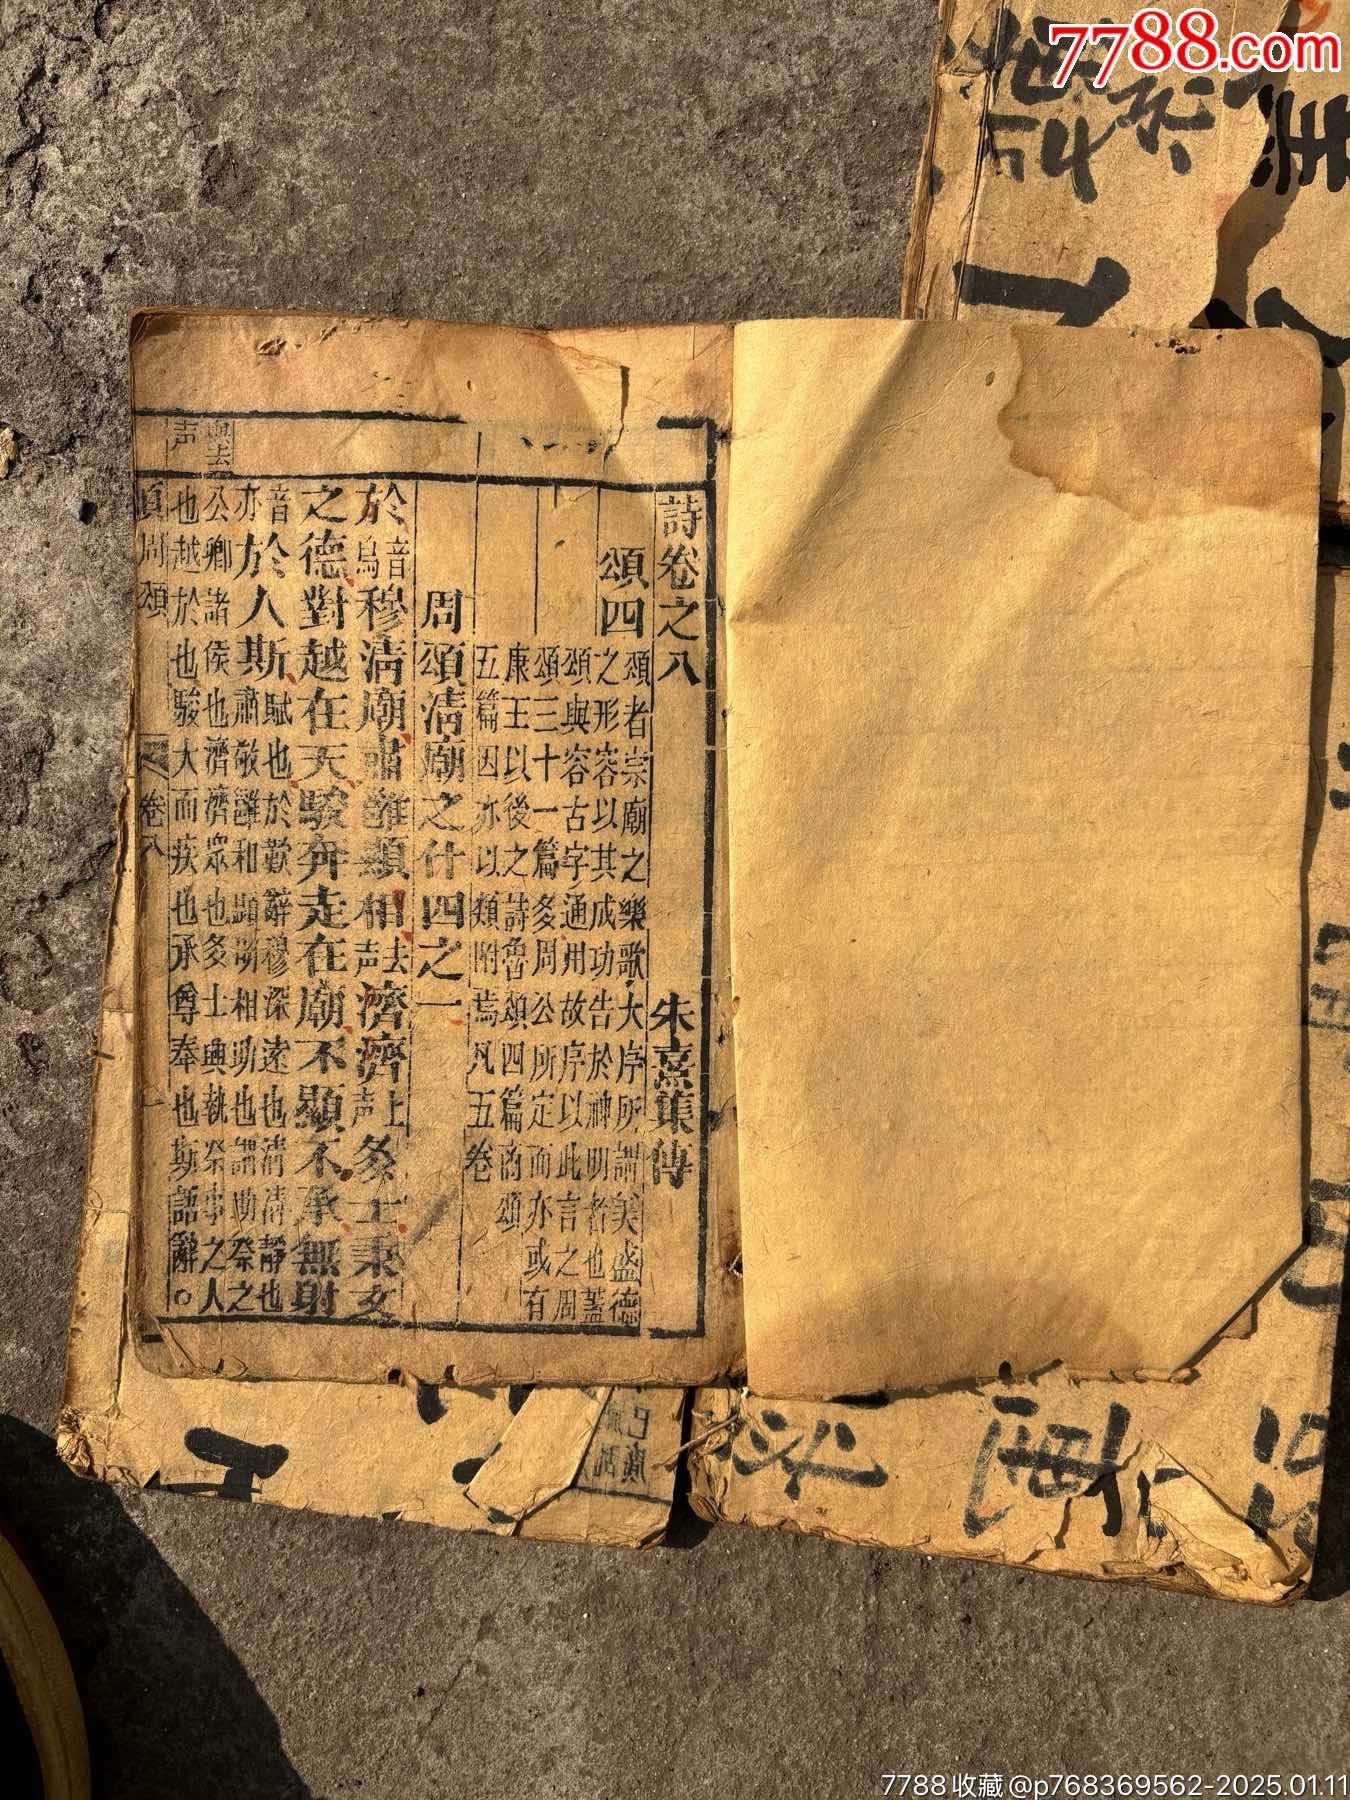 7788.com
詩卷之八
朱熹集傳
頌四
頌者宗廟之樂歌大序所謂美盛德
之形容以其成功告於神明者也蓋
頌與容古字通用故序以此言之周
頌三十一篇多周公所定而亦或有
康王以後之詩魯頌四篇商頌
五篇因亦以類附焉凡五卷
周頌清廟之什四之一
於音烏穆清廟肅雝顯相去声濟濟上声多士秉文
之德對越在天駿奔走在廟不顯不承無射
音亦於人斯賦也於歎辭穆深遠也清清靜也
肅敬雝和顯明相助也謂助祭之
公卿諸侯也濟濟眾也多士與執祭事之人
也越於也駿大而疾也承尊奉也斯語辭○
與去
声
周頌
卷八
7788收藏@p768369562-2025.01.11